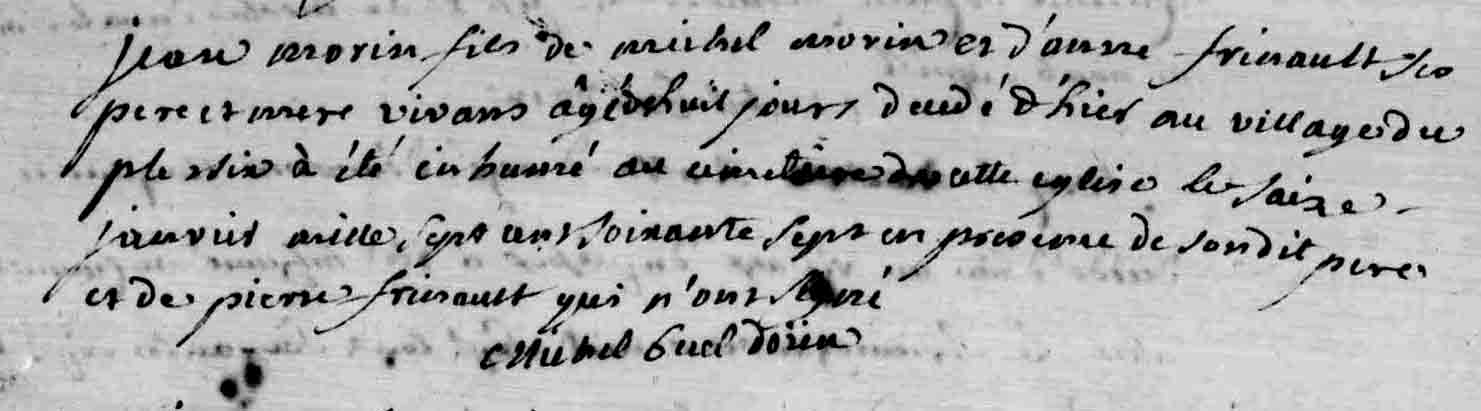 jean morin fils de michel morin et d'anne frinault ses
pere et mere vivans âgé de huit jours decedé d'hier au village du
plessix à été inhumé au cimetiere de cette eglise le saize
janvier mille sept cent soixante sept en presence de son dit pere
et de pierre frinault qui n'ont signé
Michel doïen